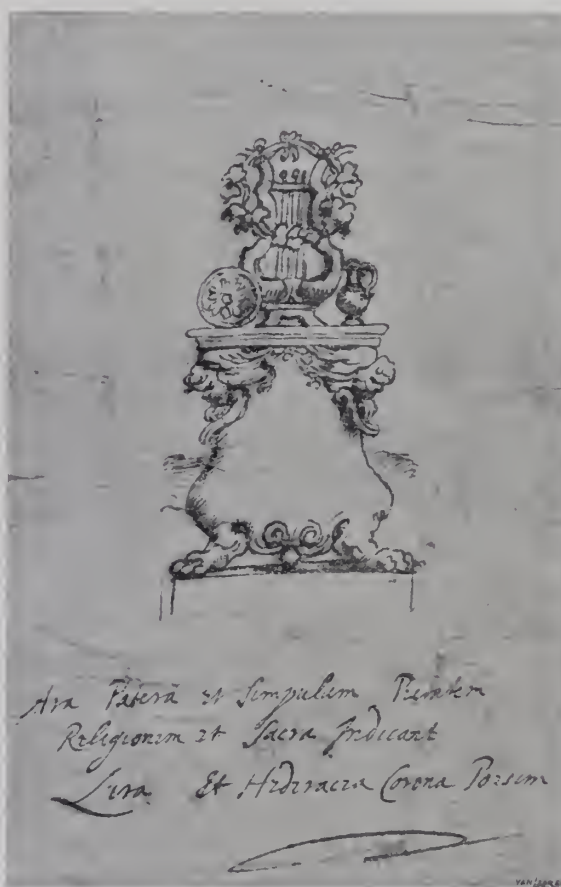 Ara Paterā et Simpulum Pietatem
Religionem et Sacra Indicant
Lira Et Hederacea Corona Poesim